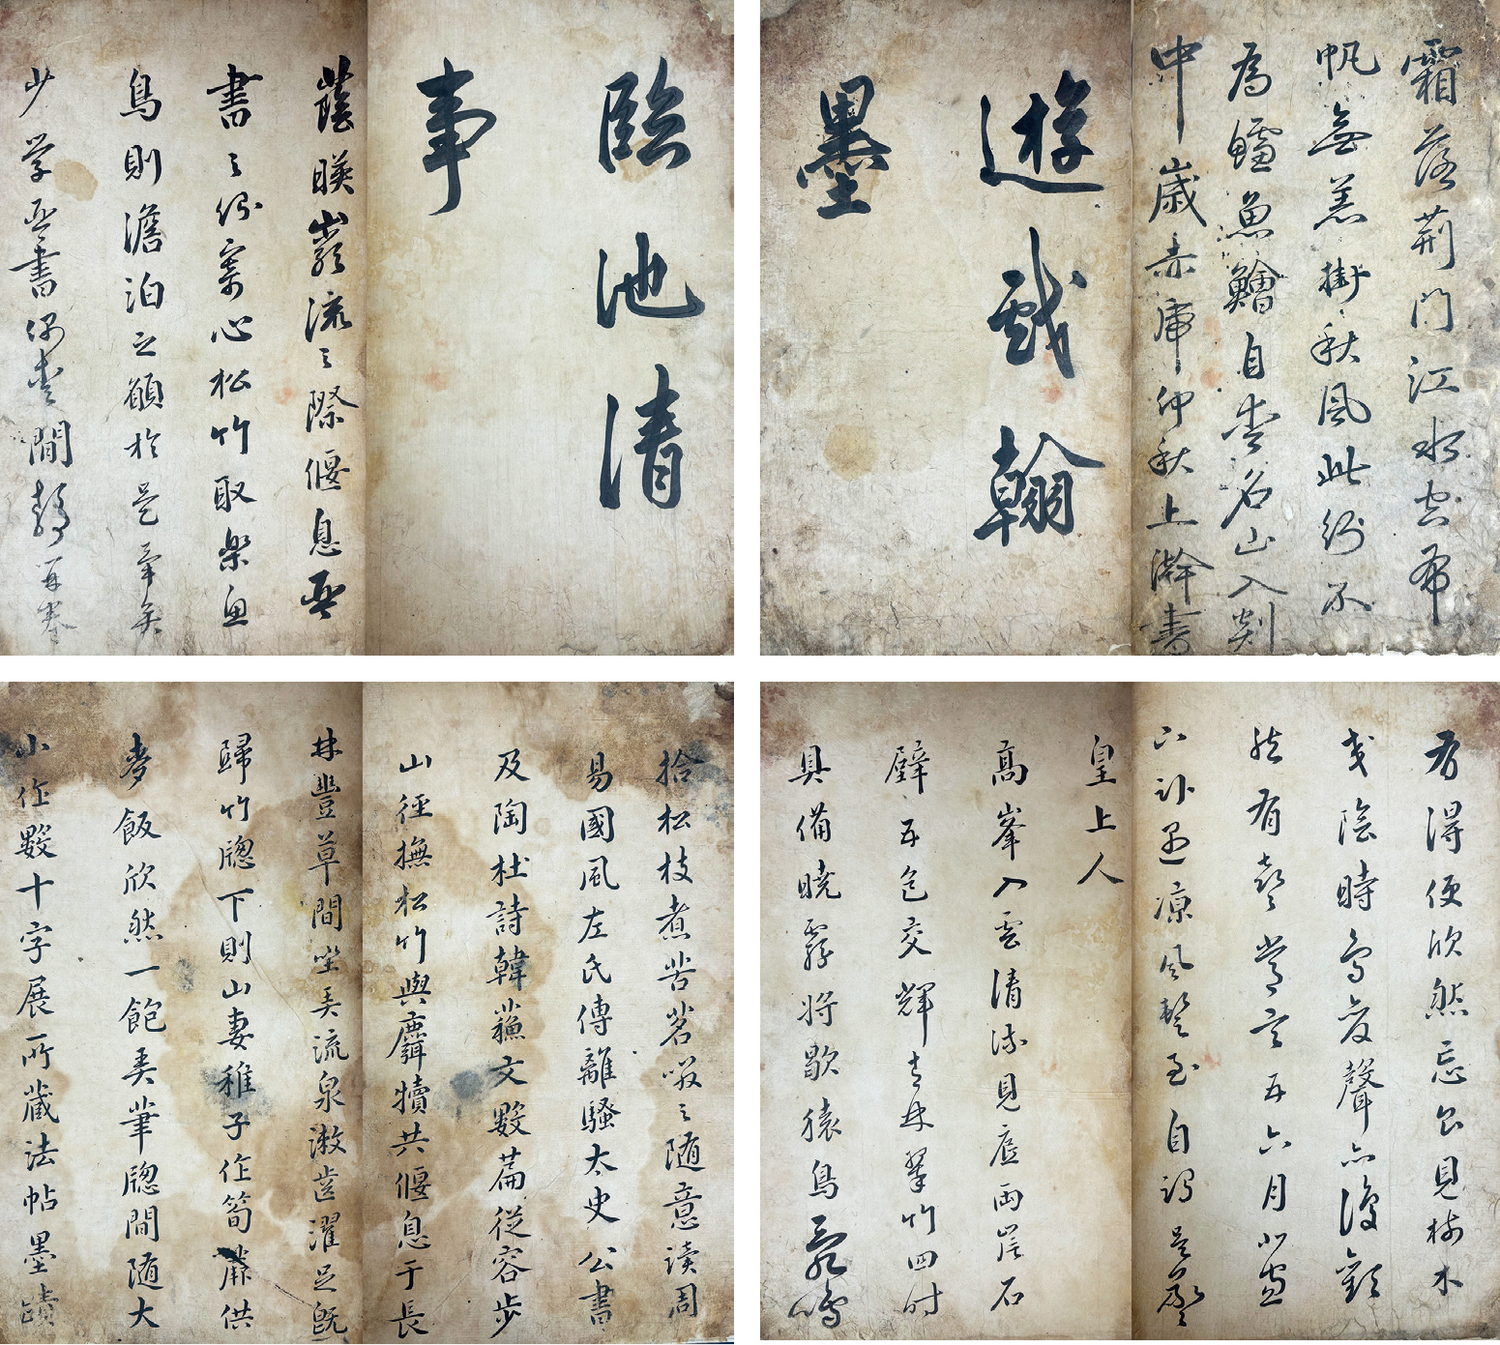 霜落荊門江水空布
帆無恙掛秋風此行不
為鱸魚鱠自愛名山入剡
中 歲赤虎仲秋上澣書
遊戲翰
墨
臨池清
事
蔭暎巖流之際偃息琴
書之側寄心松竹取樂魚
鳥則澹泊之願於是畢矣
少学琴書偶愛閒靜開卷
有得便欣然忘食見樹木
交陰時鳥變聲亦復歡
然有喜嘗言五六月北窗
下卧遇凉風暫至自謂是羲
皇上人
高峯入雲清流見底兩崖石
壁五色交輝青林翠竹四时
具備曉霧將歇猿鳥亂鳴
拾松枝煮苦茗啜之随意读周
易國風左氏傳離騷太史公書
及陶杜詩韓蘓文數篇從容步
山徑撫松竹與麛犢共偃息于長
林豐草間坐弄流泉漱齒濯足既
歸竹牕下則山妻稚子作筍蕨供
麥飯欣然一飽弄筆牕間随大
小作數十字展所藏法帖墨蹟